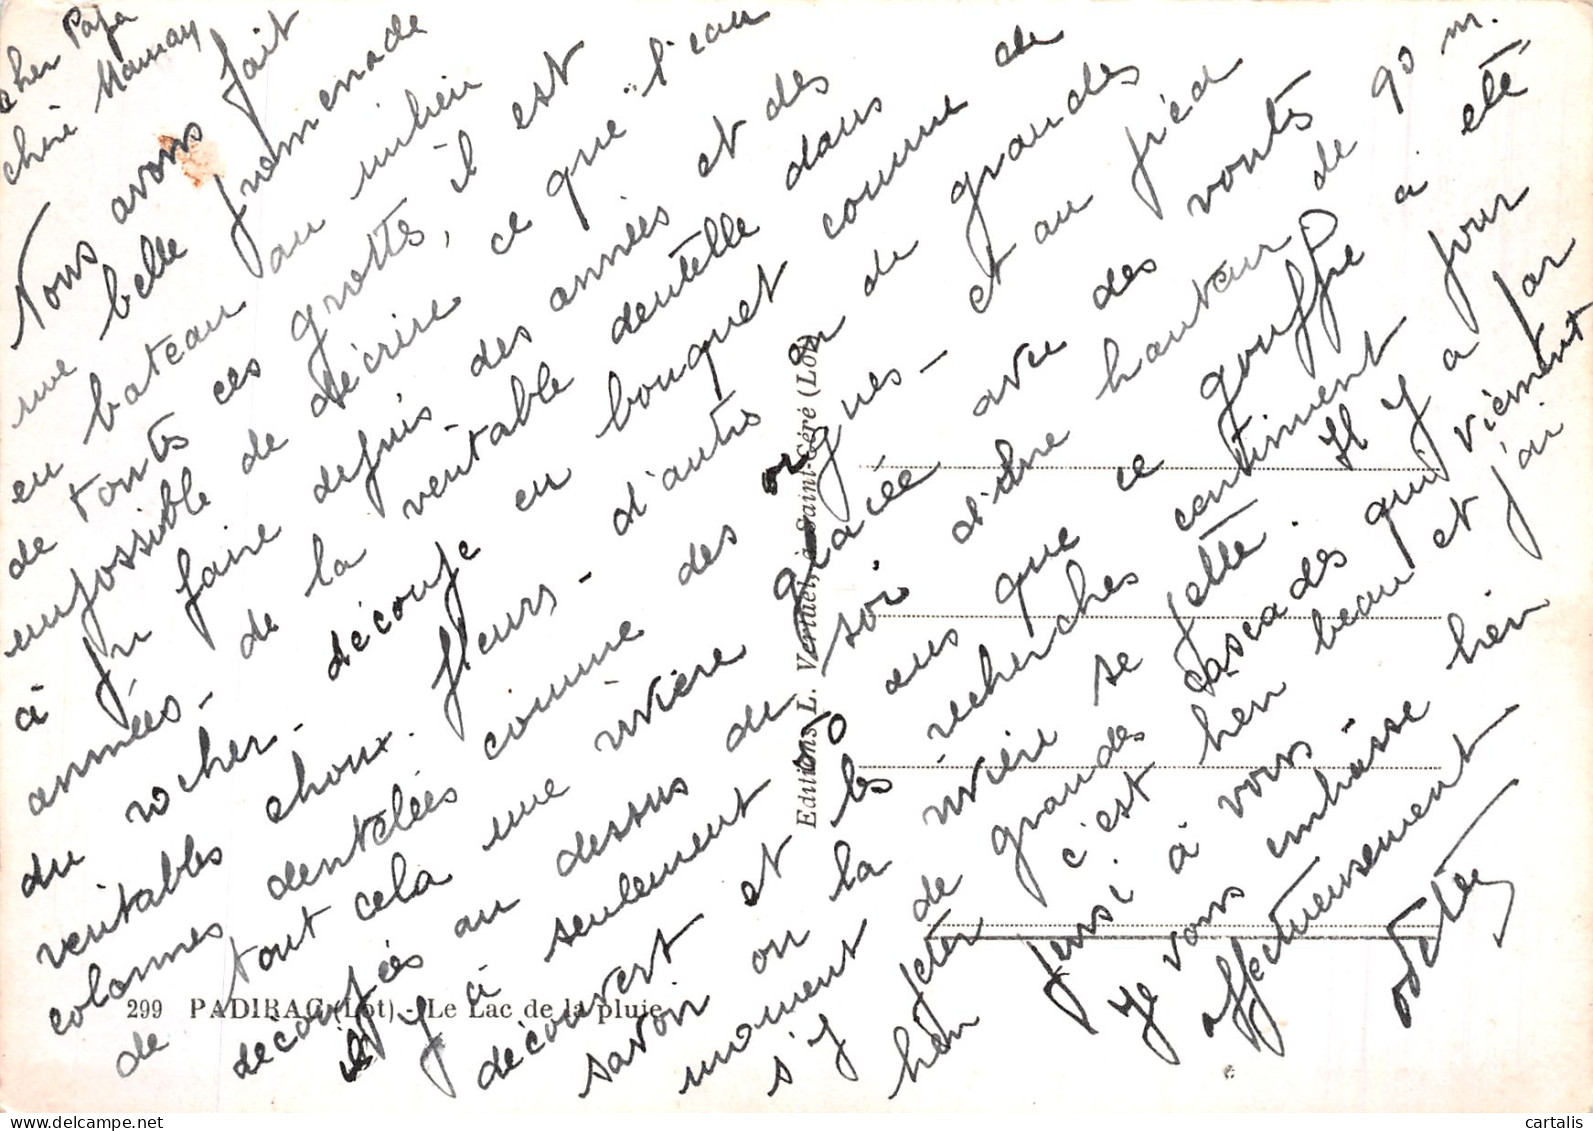 cher Papa
chère Maman
Nous avons fait
une belle promenade
en bateau au milieu
de touts ces grottes, il est
impossible de décrire ce que l'eau
à pu faire depuis des années et des
années - de la veritable dentelle dans
du rocher - découpé en bouquet comme de
veritables choux. fleurs - d'autres de grandes
colonnes dentelées comme des orgues - et au pied
de tout cela une rivière glacée avec des vouts
découpées au dessus de soi d'une hauteur de 90 m.
il y à seulement 80 ans que ce gouffre a été
découvert et les récherches continuent pour
savoir ou la rivière se jette. Il y a par
moment de grandes cascades qui viennent
s'y jeter c'est bien beau et j'ai
bien pensé à vous -
Je vous embrasse bien
affectueusement
odette
299 PADIRAC (Lot) - Le Lac de la pluie
Editions L. Vertuel, à Saint-Céré (Lot)
cartalis